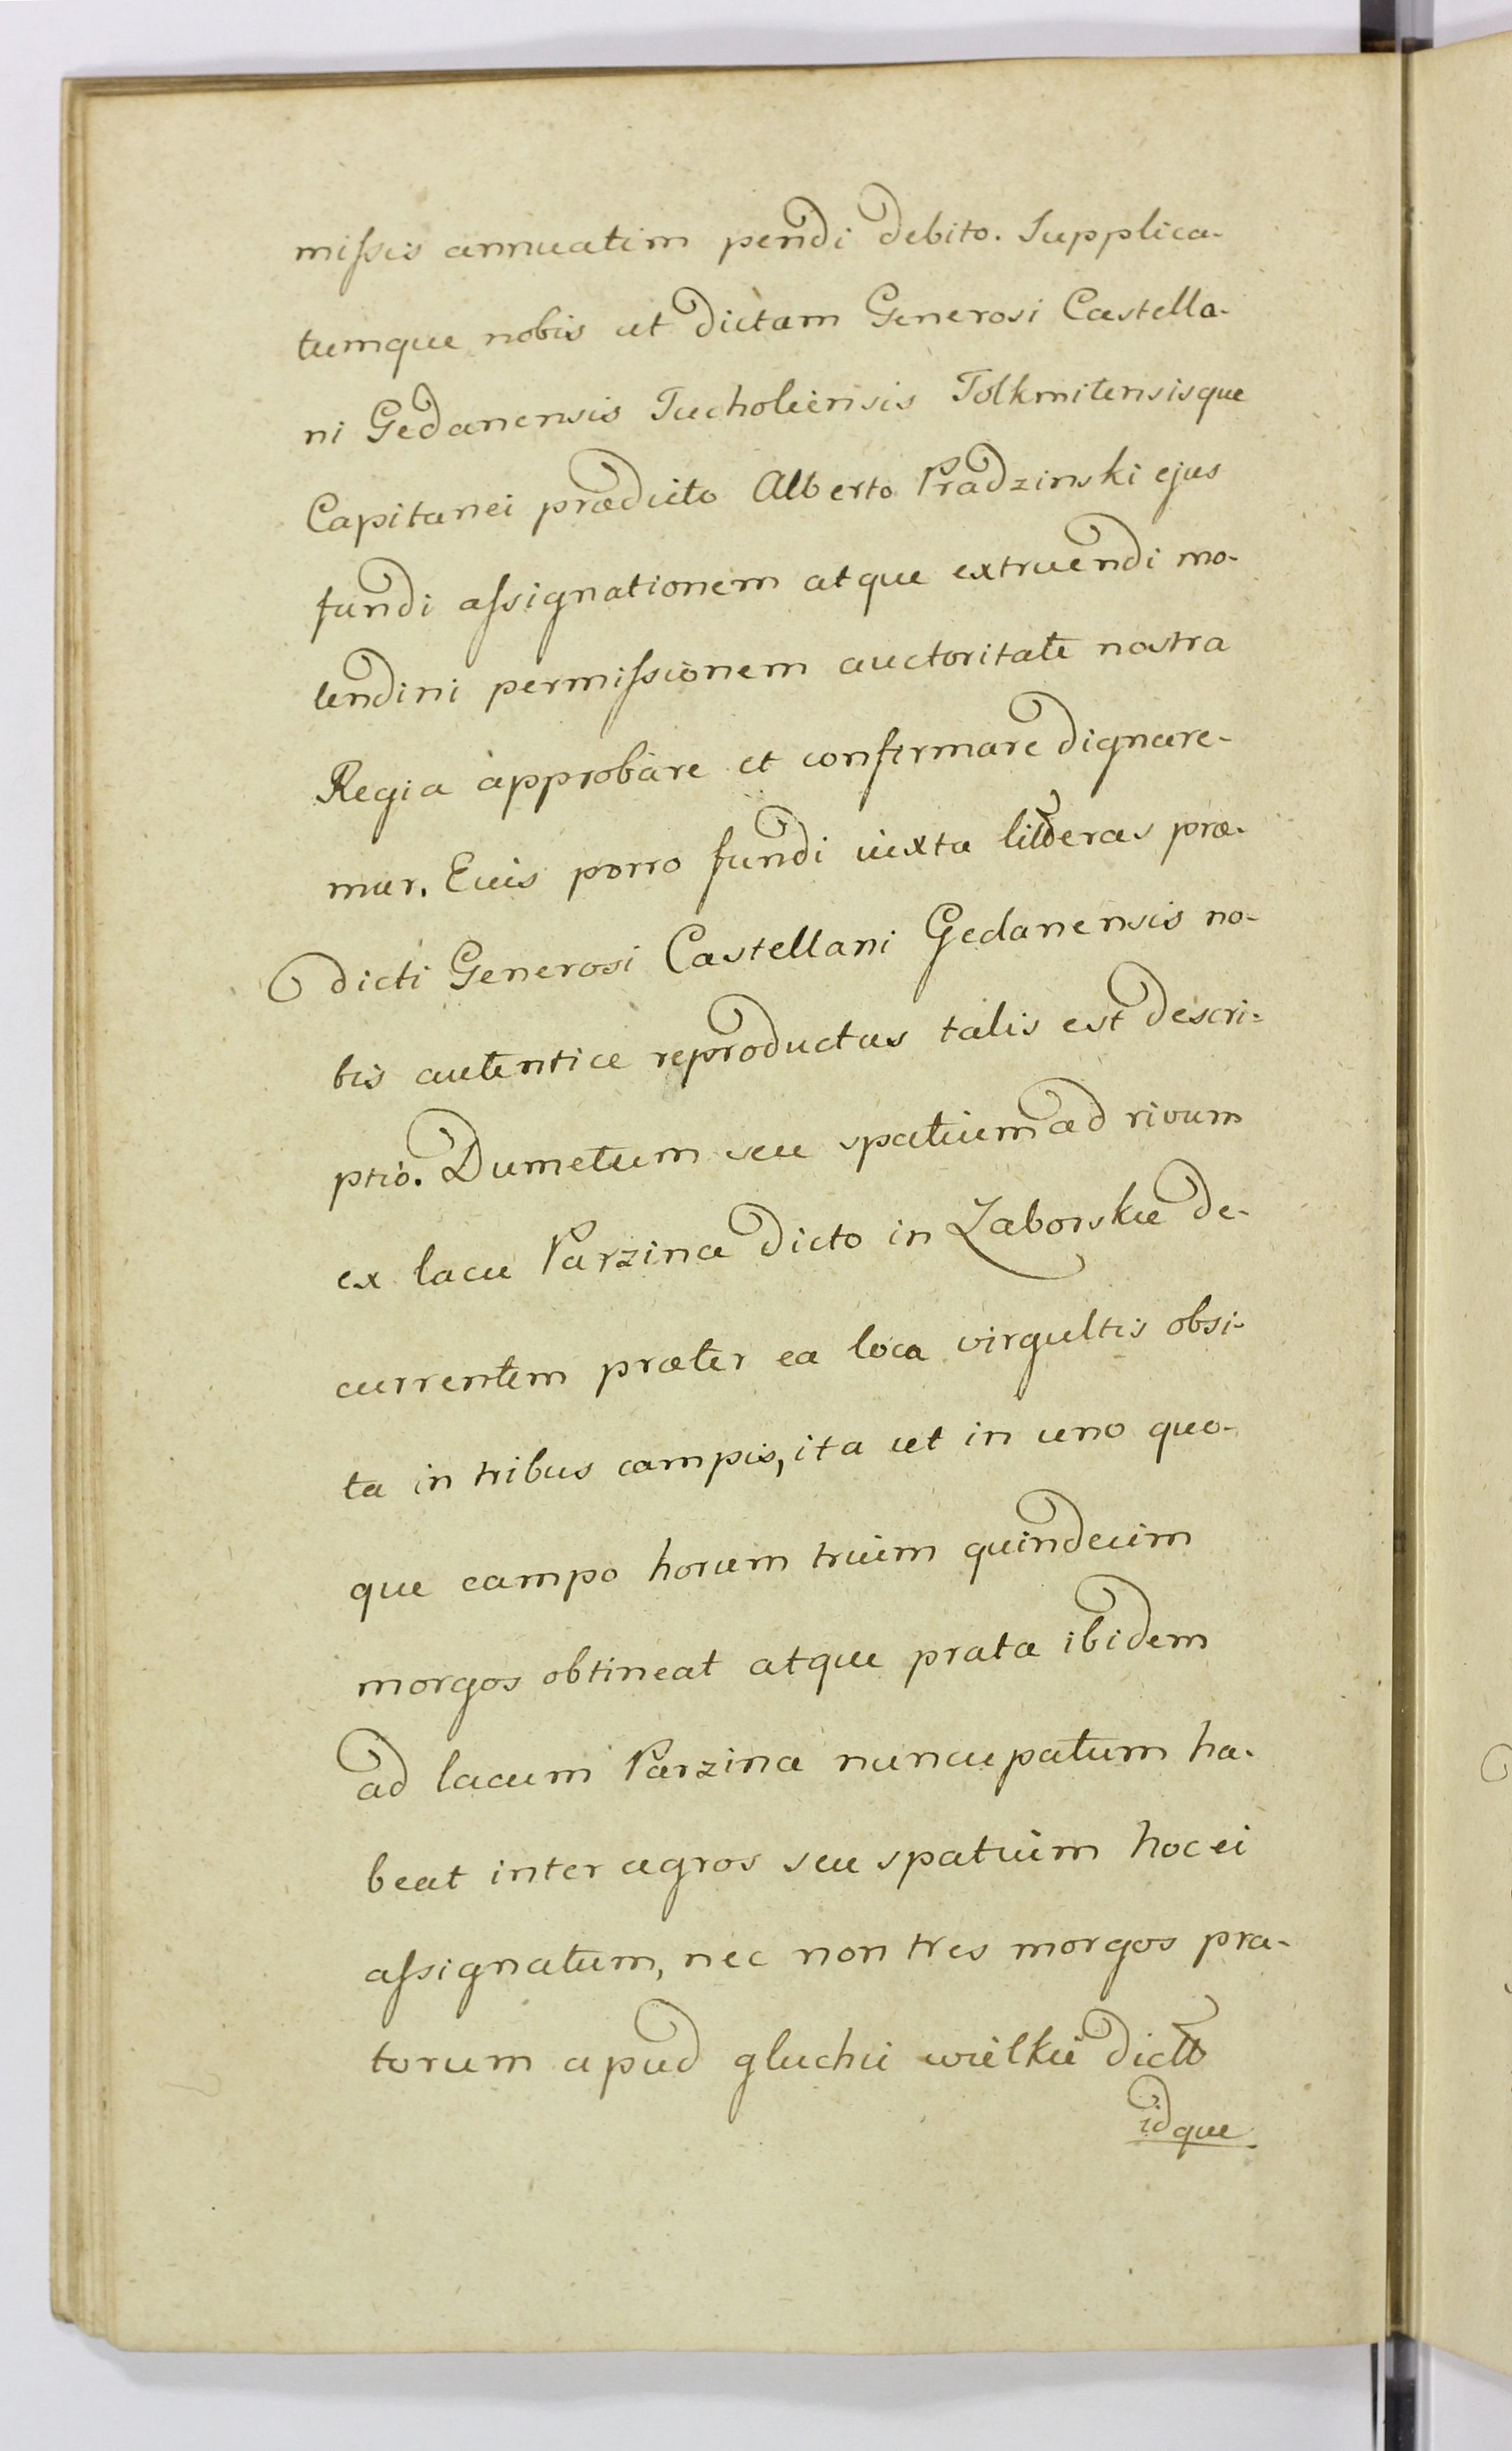 missis annuatim pendi debito. Supplica-
tumque nobis ut dictam Generosi Castella-
ni Gedanensis Tucholiensis Tolkmitensisque
Capitanei prædicto Alberto Pradzinski ejus
fundi assignationem atque extruendi mo-
lendini permissionem auctoritate nostra
Regia approbare et confirmare dignare-
mur. Cuis porro fundi iuxta litteras præ-
dicti Generosi Castellani Gedanensis no-
bis autentice reproductas talis est descri-
ptio. Dumetum seu spatium ad rivum
ex lacu Parzina dicto in Laborskie de-
currentem præter ea loca virgultis obsi-
ta in tribus campis, ita ut in uno quo-
que campo horum trium quindecim
morgos obtineat atque prata ibidem
ad lacum Parzina nuncupatum ha-
beat inter agros seu spatium hoc ei
assignatum, nec non tres morgos pra-
torum apud gluchii wielkii dicto
idque